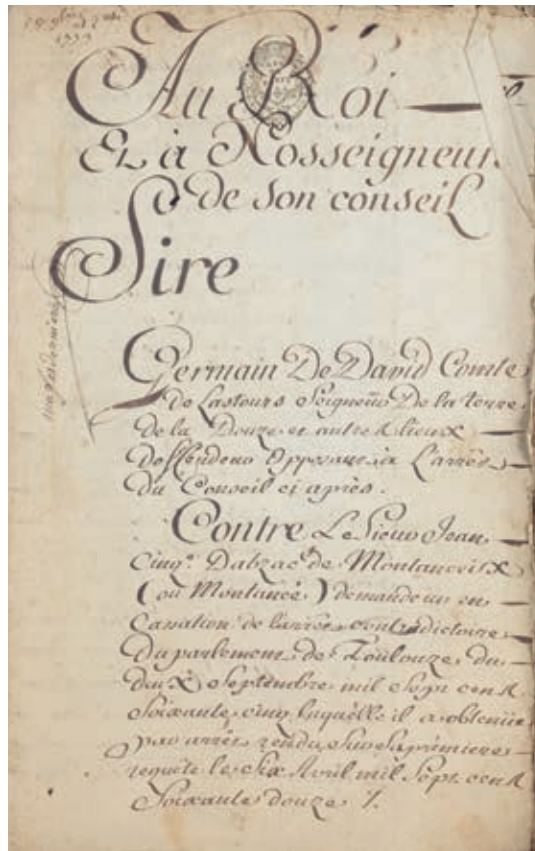 Au Roi
Et à Nosseigneurs
de son conseil
Sire
Germain De David Comte
de Lastours Seigneur De la terre
de la Douze et autres lieux
deffendeur Opposant à L'arrêt
du Conseil ci après.
Contre Le Sieur Jean
Cinq. Dabzac de Montanceix
(ou Montancé) demandeur en
Cassation de l'arrêt contradictoire
du parlement de Toulouze du
deux Septembre mil Sept cent
Soixante cinq laquelle il a obtenüe
par arrêt rendu sur sa première
requête le Six Avril mil Sept cent
Soixante douze %.